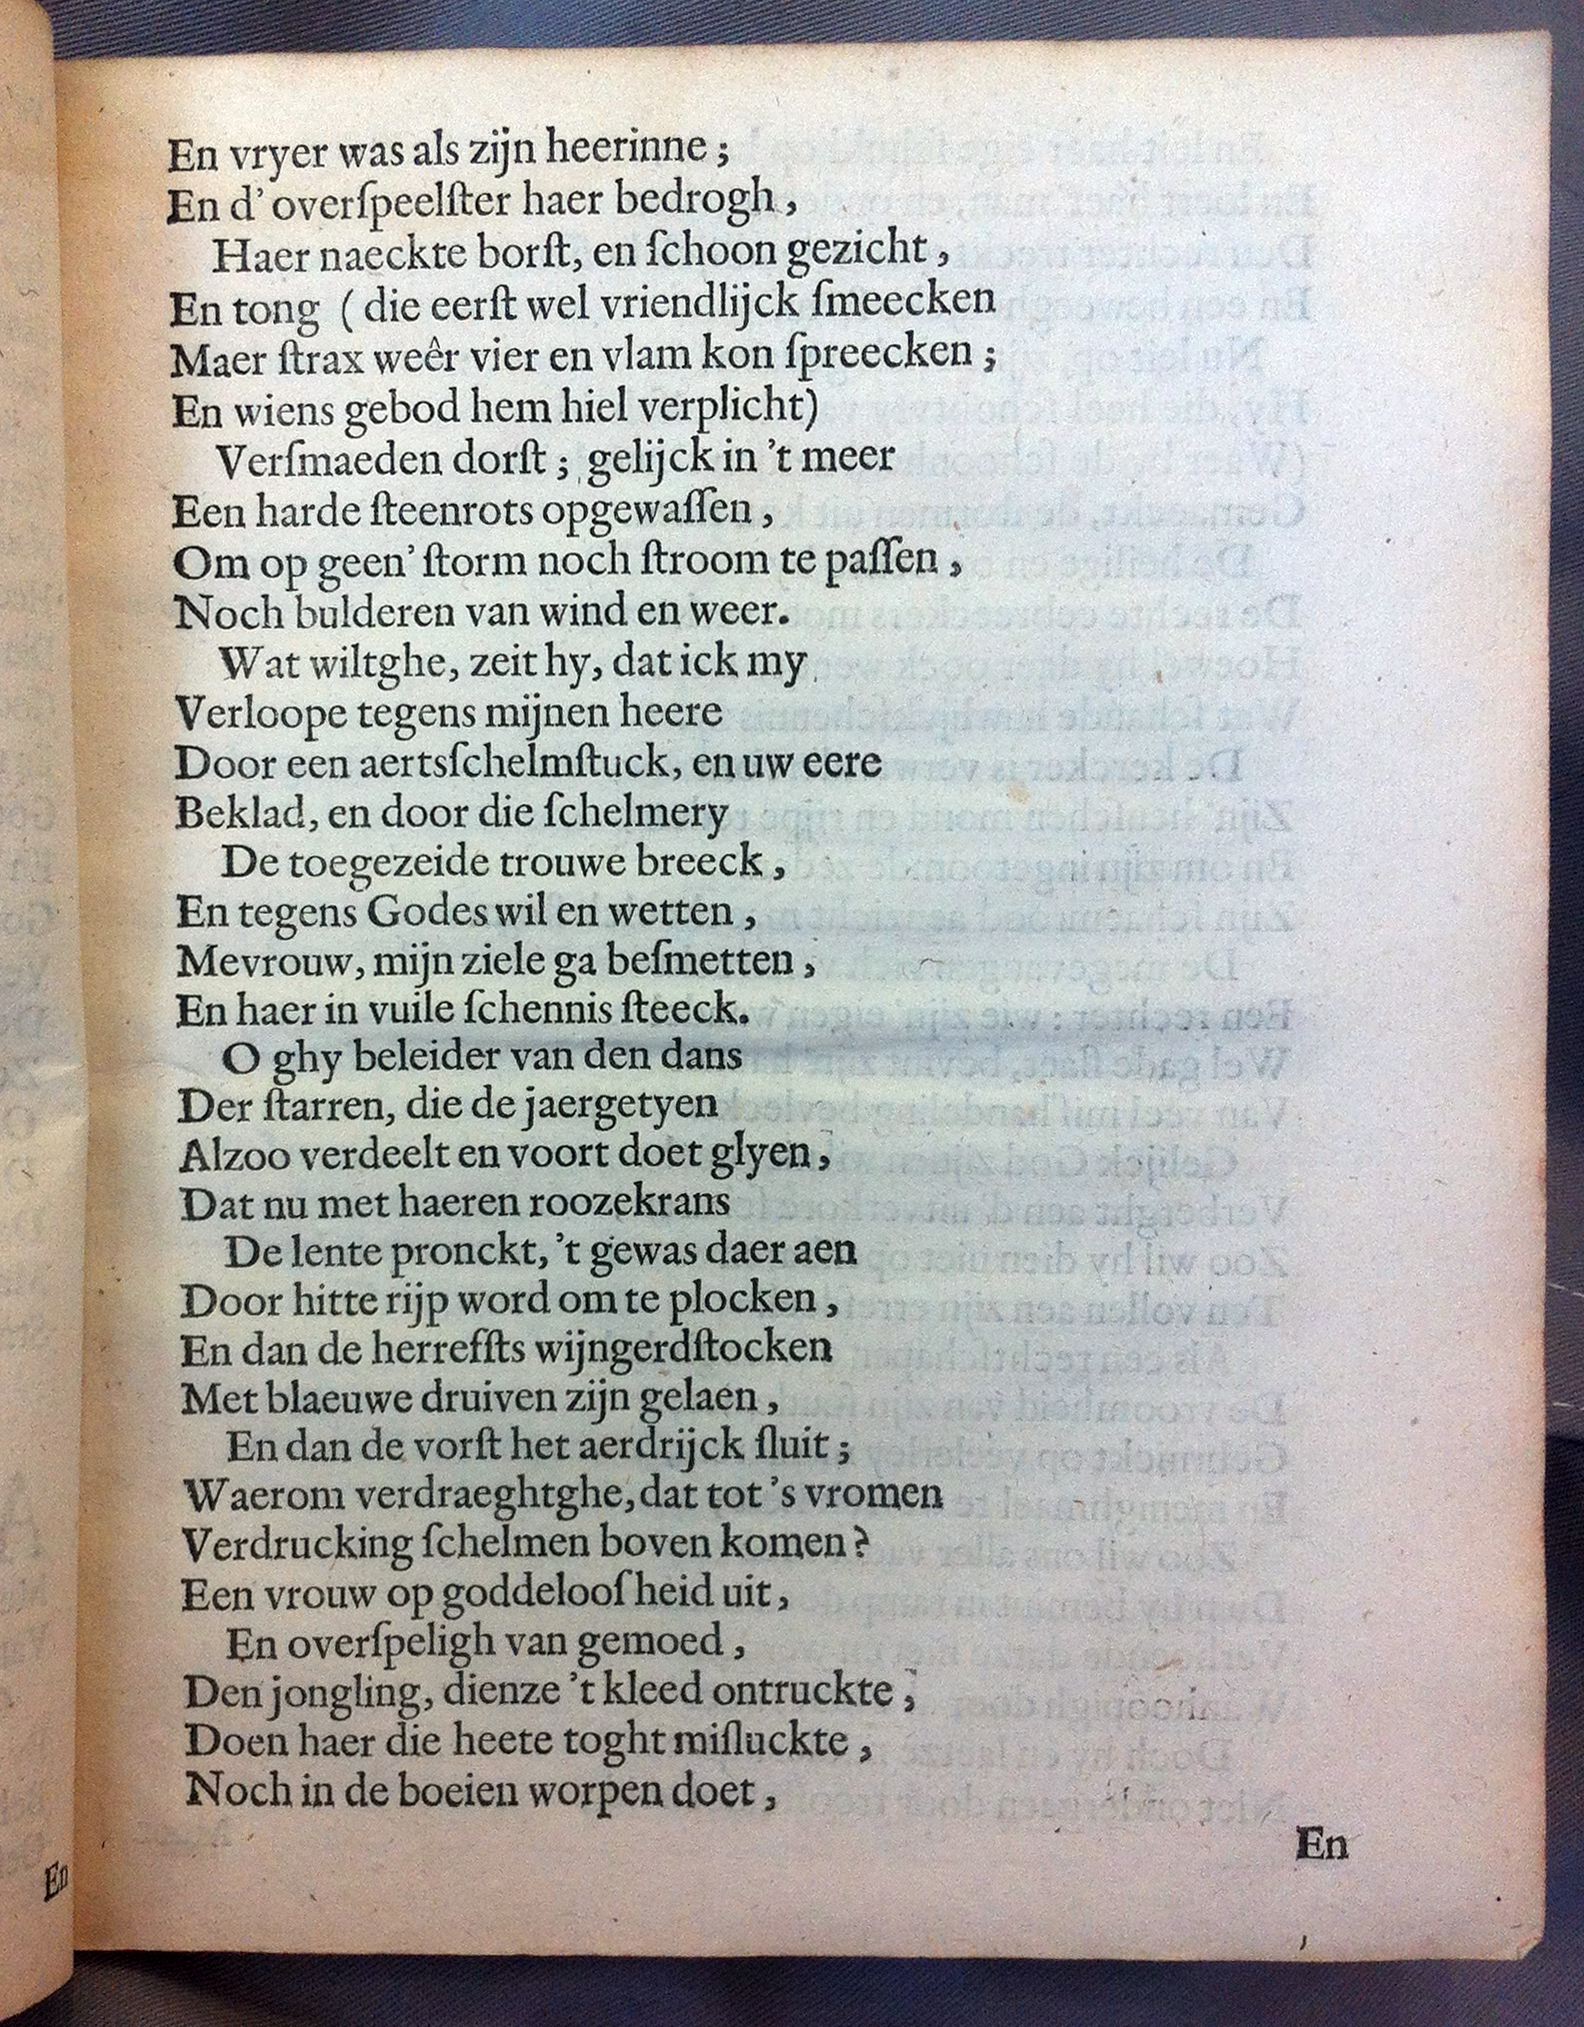 En vryer was als zijn heerinne;
En d' overſpeelſter haer bedrogh,
Haer naeckte borſt, en ſchoon gezicht,
En tong (die eerſt wel vriendlijck ſmeecken
Maer ſtrax weêr vier en vlam kon ſpreecken;
En wiens gebod hem hiel verplicht)
Verſmaeden dorſt; gelijck in 't meer
Een harde ſteenrots opgewaſſen,
Om op geen' ſtorm noch ſtroom te paſſen,
Noch bulderen van wind en weer.
Wat wiltghe, zeit hy, dat ick my
Verloope tegens mijnen heere
Door een aertsſchelmſtuck, en uw eere
Beklad, en door die ſchelmery
De toegezeide trouwe breeck,
En tegens Godes wil en wetten,
Mevrouw, mijn ziele ga beſmetten,
En haer in vuile ſchennis ſteeck.
O ghy beleider van den dans
Der ſtarren, die de jaergetyen
Alzoo verdeelt en voort doet glyen,
Dat nu met haeren roozekrans
De lente pronckt, 't gewas daer aen
Door hitte rijp word om te plocken,
En dan de herreffts wijngerdſtocken
Met blaeuwe druiven zijn gelaen,
En dan de vorſt het aerdrijck ſluit;
Waerom verdraeghtghe, dat tot 's vromen
Verdrucking ſchelmen boven komen?
Een vrouw op goddeloosheid uit,
En overſpeligh van gemoed,
Den jongling, dienze 't kleed ontruckte,
Doen haer die heete toght miſluckte,
Noch in de boeien worpen doet,
En
En